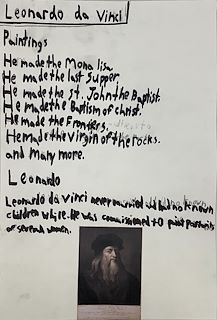 Leonardo da Vinci
Paintings
He made the Mona lisa
He made the last supper
He made the st. John the Baptist.
He made the Baptism of christ.
He made the
He made the Virgin of the rocks.
and Many more.
Leonardo
Leonardo da vinci never married and had no known
children while. He was commissioned to paint portraits
of several women.